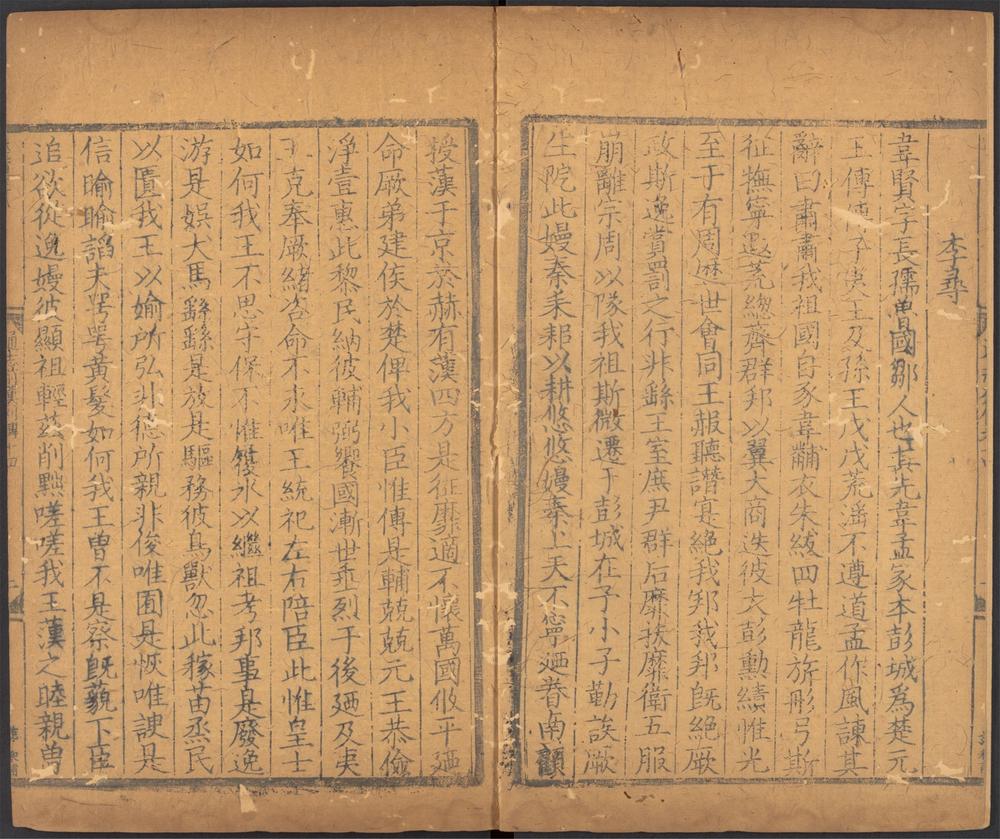 李尋
韋賢字長孺魯國鄒人也其先韋孟家本彭城為楚元
王傅傅子夷王及孫王戊戊荒滛不遵道孟作風諫其
辭曰肅肅我祖國自豕韋黼衣朱紱四牡龍旂彤弓斯
征撫寧遐荒緫齊群邦以翼大商迭彼大彭勲績惟光
至于有周歴世會同王赧聽譖寔絕我邦我邦旣絕厥
政斯逸賞罰之行非繇王室庶尹群后靡扶靡衛五服
崩離宗周以隊我祖斯微遷于彭城在予小子勤誒厥
生阸此嫚秦耒耜以耕悠悠嫚秦上天不寧廼眷南顧
授漢于京於赫有漢四方是征靡適不懷萬國攸平廼
命厥弟建侯於楚俾我小臣惟傅是輔兢兢元王恭儉
淨壹惠此黎民納彼輔弼饗國漸世垂烈于後廼及夷
王克奉厥緒咨命不永唯王統祀左右陪臣此惟皇士
如何我王不思守保不惟履冰以繼祖考邦事是廢逸
游是娛犬馬繇繇是放是驅務彼鳥獸忽此稼苗烝民
以匱我王以媮所弘非德所親非俊唯囿是恢唯諛是
信睮睮謟夫咢咢黃髮如何我王曾不是察旣藐下臣
追欲從逸嫚彼顯祖輕茲削黜嗟嗟我王漢之睦親曾